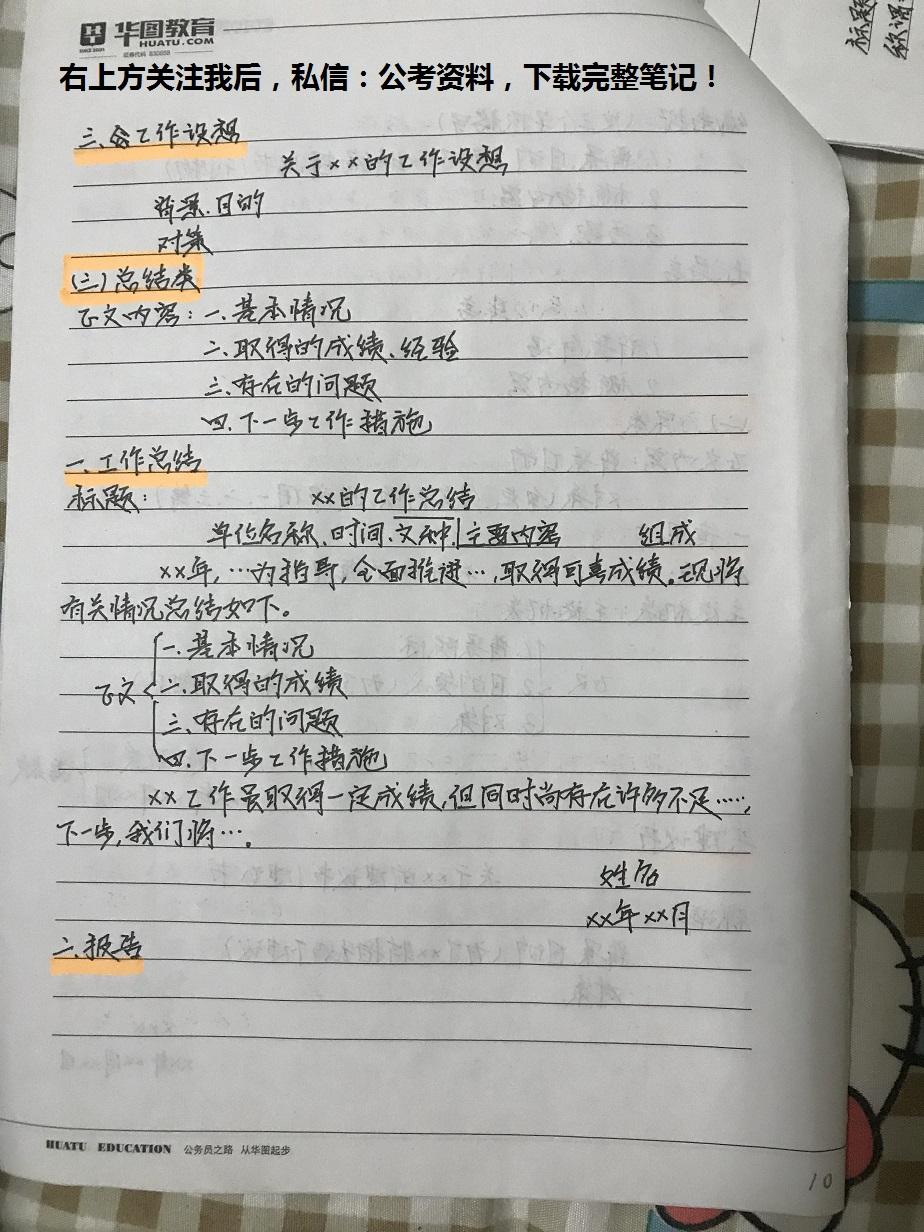 华图教育
HUATU.COM
SINCE 2001
证券代码 830858
右上方关注我后，私信：公考资料，下载完整笔记！
标题
称谓
三.写工作设想
关于xx的工作设想
背景.目的
对策
(三)总结类
正文内容：一.基本情况
二.取得的成绩、经验
三.存在的问题
四.下一步工作措施
一.工作总结
标题： xx的工作总结
单位名称、时间、文种 主要内容 组成
xx年，…为指导，全面推进…，取得可喜成绩。现将
有关情况总结如下。
一.基本情况
正文 二.取得的成绩
三.存在的问题
四.下一步工作措施
xx工作虽取得一定成绩，但同时尚存在许多不足……，
下一步，我们将…。
姓名
xx年xx月
二.报告
HUATU EDUCATION 公务员之路 从华图起步
10